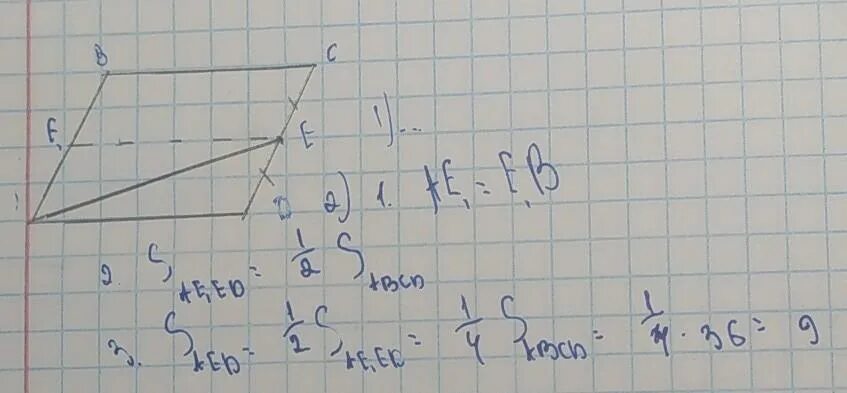 B
C
E₁
E
D
1) ...
2) 1. AE₁ = E₁B
2. S_{AE₁ED} = 1/2 S_{ABCD}
3. S_{AED} = 1/2 S_{AE₁ED} = 1/4 S_{ABCD} = 1/4 · 36 = 9